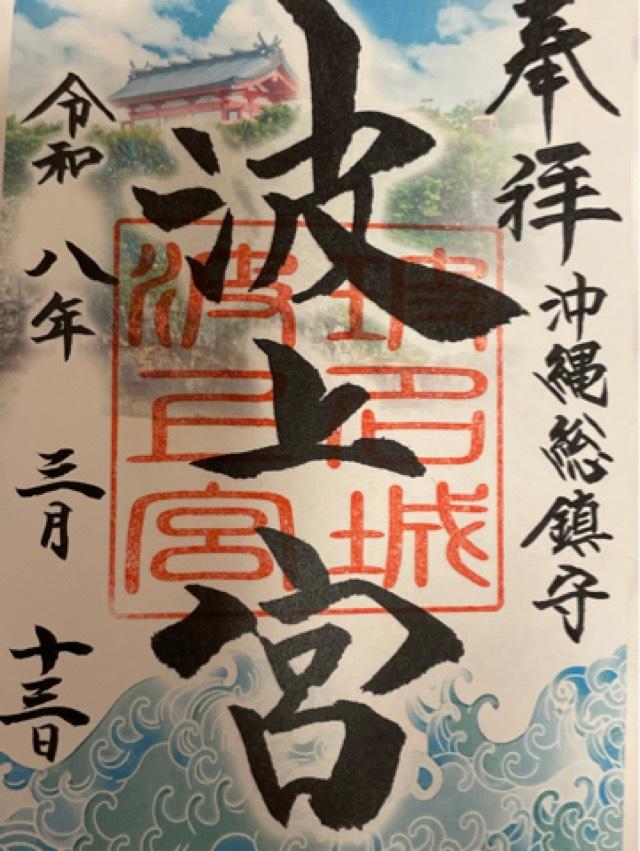 奉拝
沖縄総鎮守
波上宮
瑱名城
波上宮
令和八年三月十三日